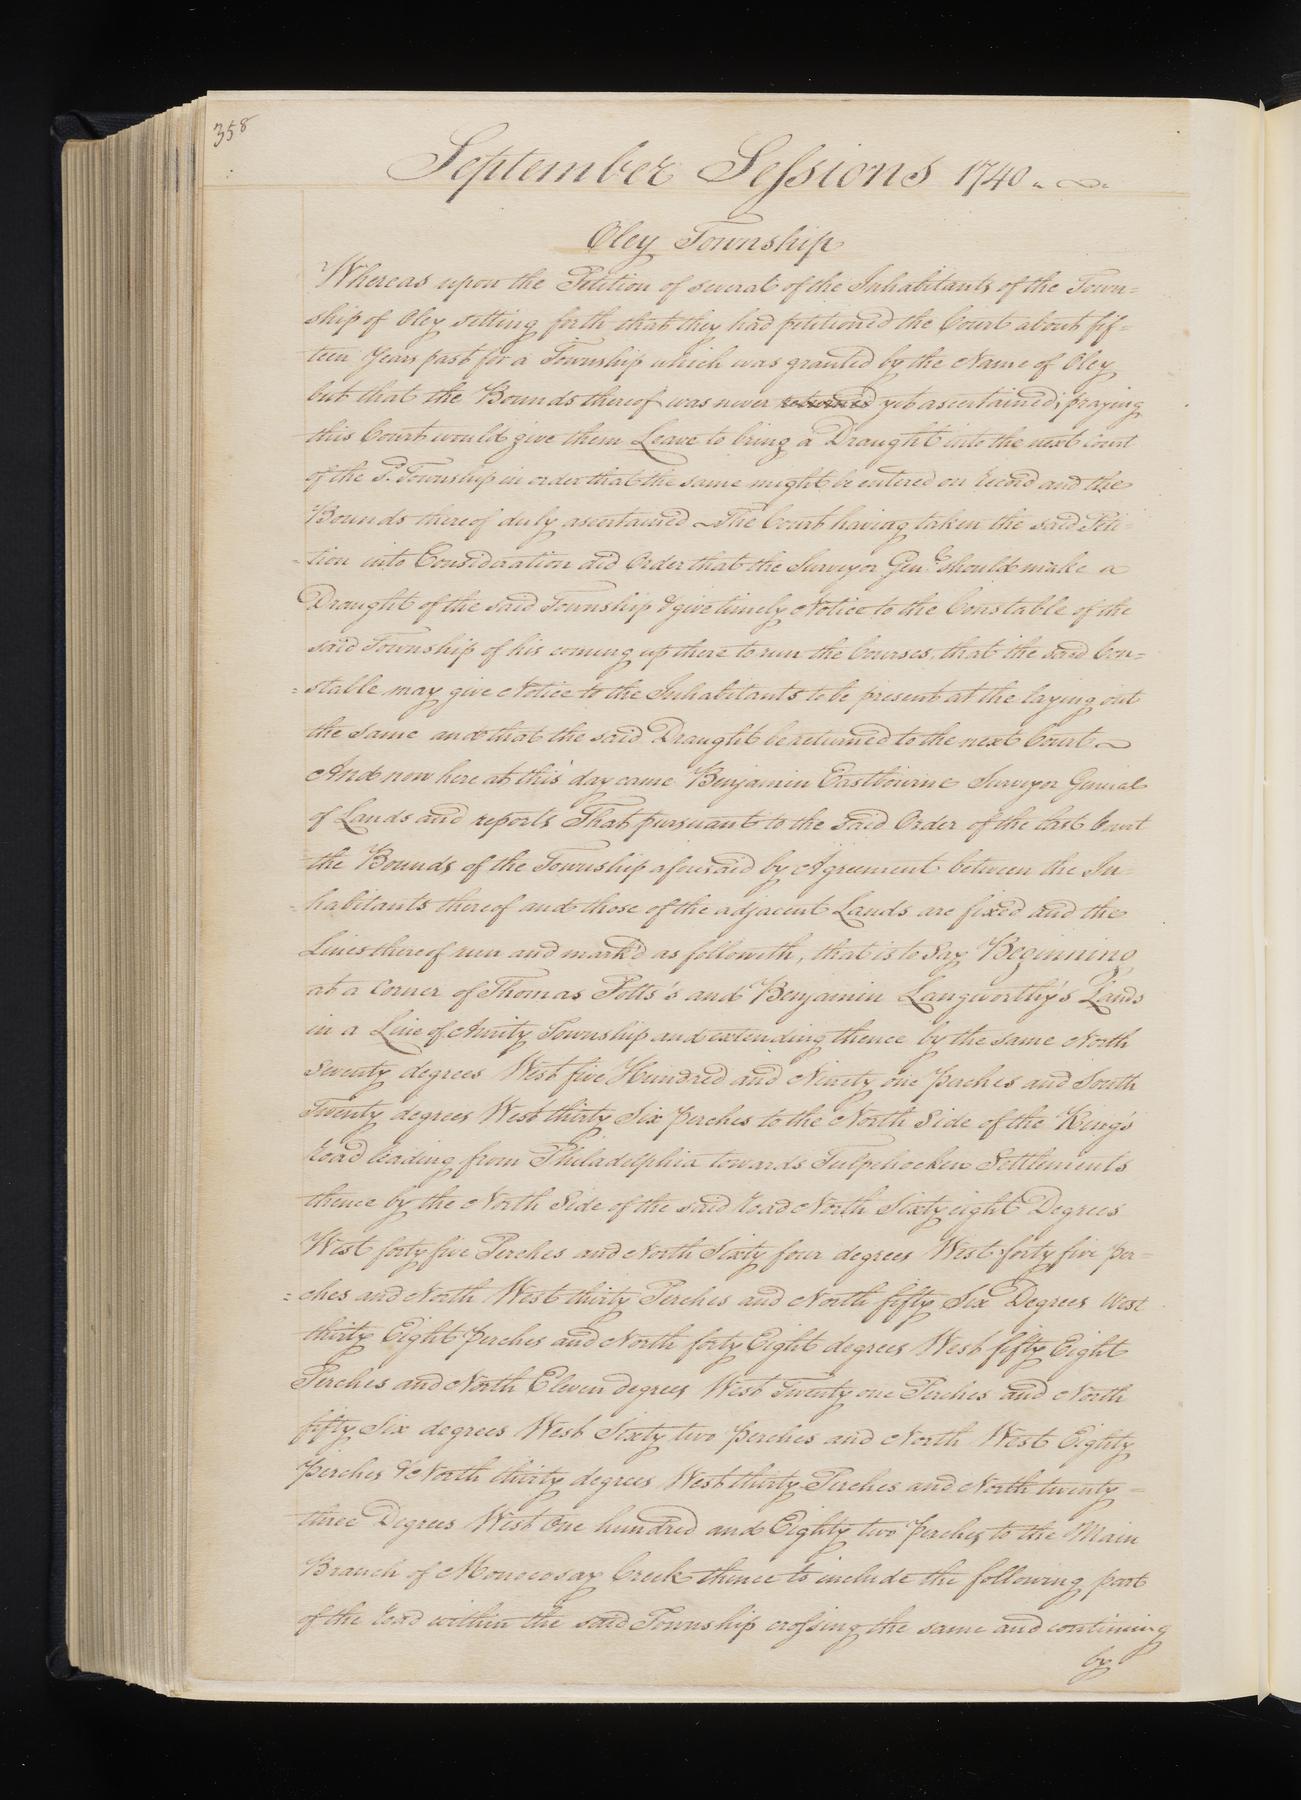 358
September Sessions 1740
Oley Township
Whereas upon the Petition of several of the Inhabitants of the Town=
ship of Oley setting forth that they had petitioned the Court about fif=
teen Years past for a Township which was granted by the Name of Oley
but that the Bounds thereof was never returned yet ascertained; praying
this Court would give them Leave to bring a Draught into the next court
of the Sd. Township in order that the same might be entered on record and the
Bounds thereof duly ascertained ~ The Court having taken the said Peti=
=tion into Consideration did Order that the Surveyor Genl. should make a
Draught of the said Township & give timely Notice to the Constable of the
said Township of his coming up there to run the Courses, that the said Con=
=stable may give Notice to the Inhabitants to be present at the laying out
the same and that the said Draught be returned to the next Court ~
And now here at this day came Benjamin Eastbourne Surveyor General
of Lands and reports That pursuant to the said Order of the last Court
the Bounds of the Township aforesaid by Agreement between the In=
=habitants thereof and those of the adjacent Lands are fixed and the
Lines thereof run and mark'd as followeth, that is to Say Beginning
at a Corner of Thomas Potts's and Benjamin Langworthy's Lands
in a Line of Amity Township and extending thence by the same North
Seventy degrees West five Hundred and Ninety one perches and South
Twenty degrees West thirty Six perches to the North Side of the King's
road leading from Philadelphia towards Tulpehocken Settlements
thence by the North Side of the said road North Sixty eight Degrees
West forty five Perches and North Sixty four degrees West forty five per=
=ches and North West thirty Perches and North fifty Six Degrees West
thirty Eight perches and North forty Eight degrees West fifty Eight
Perches and North Eleven degrees West Twenty one Perches and North
fifty Six degrees West Sixty two perches and North West Eighty
perches & North thirty degrees West thirty Perches and North twenty=
three Degrees West One hundred and Eighty two perches to the Main
Branch of Monocosay Creek thence to include the following part
of the road within the said Township crossing the same and continuing
by